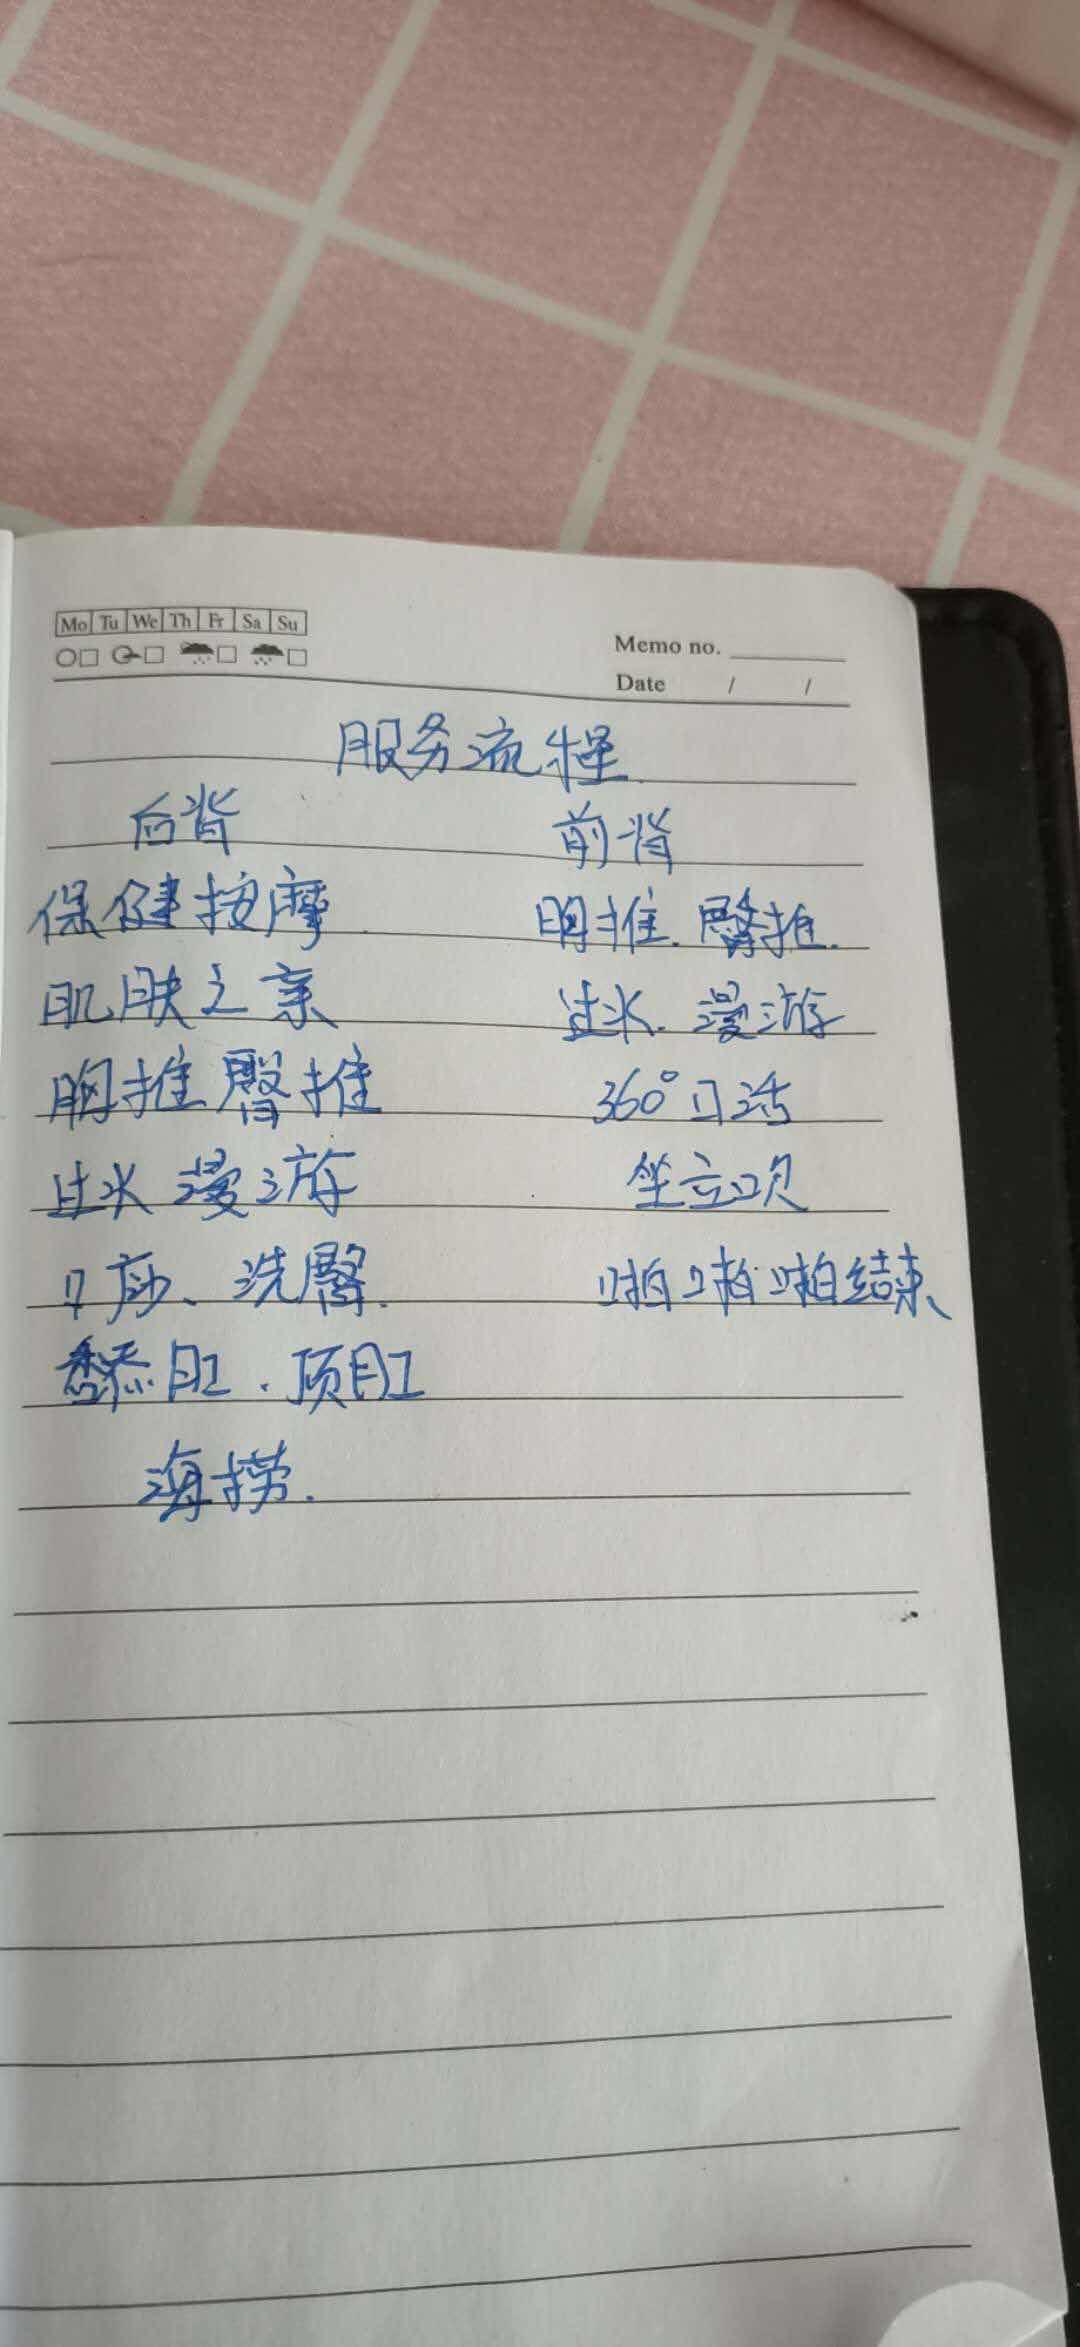 Mo Tu We Th Fr Sa Su
Memo no.
Date / /
服务流程
后背 前背
保健按摩 胸推.臀推.
肌肤之亲 过水.漫游
胸推臀推 360°口活
过水漫游 坐立吸
口莎、洗臀. 啪啪啪结束
舔肛.顶肛
海捞.